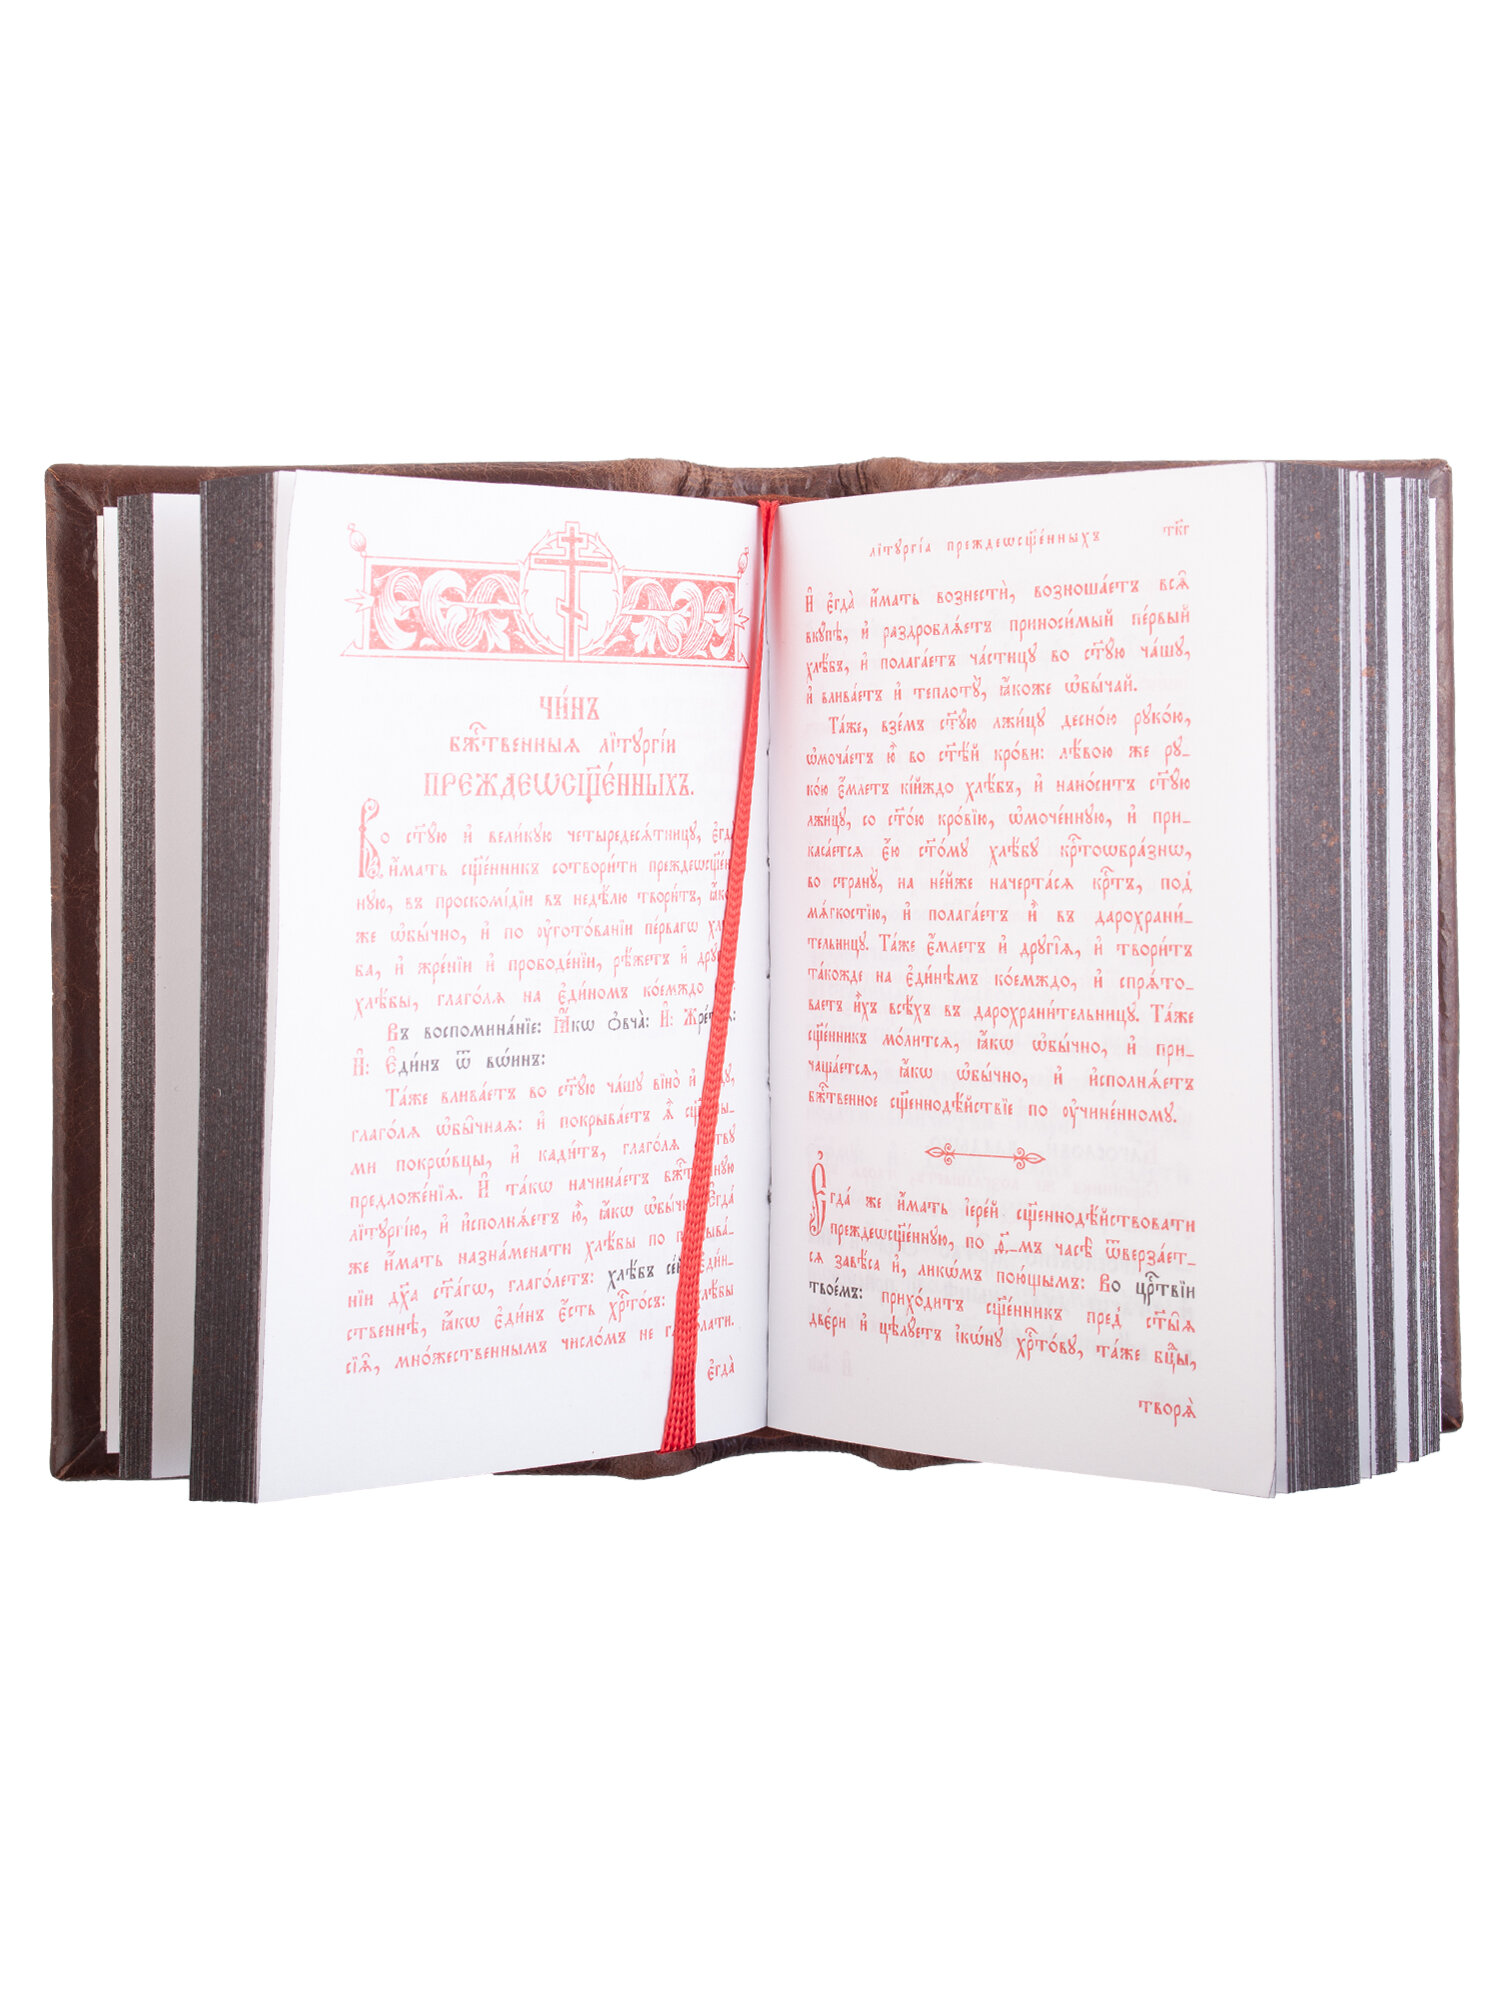 Чи́нъ
бж҃твенныѧ лїтꙋргі́и
преждеѡсщ҃е́нныхъ.
Во ст҃ꙋ́ю и҆ вели́кꙋю четыредесѧ́тницꙋ, є҆гда̀
и҆́мать сщ҃е́нникъ сотвори́ти преждеѡсщ҃е́н
нꙋю, въ проскомі́дїи въ недѣ́лю твори́тъ,
же ѡ҆бы́чно, и҆ по ᲂу҆гото́ванїи пе́рвагѡ
ба, и҆ жре́нїи и҆ прободе́нїи, рѣ́жетъ и҆
хлѣ́бы, глаго́лѧ на є҆ди́номъ кое́мждо
Въ воспомина́нїе: Ꙗ҆́кѡ ѻ҆вча̀: И҆:
И҆: Є҆ди́нъ ѿ во́инъ:
Та́же влива́етъ во ст҃ꙋ́ю ча́шꙋ вїно̀ и҆
глаго́лѧ ѡ҆бы̑чнаѧ: и҆ покрыва́етъ ѧ҆̀
ми покрѡ́вцы, и҆ кади́тъ, глаго́лѧ
предложе́нїѧ. И҆ та́кѡ начина́етъ
лїтꙋргі́ю, и҆ и҆сполнѧ́етъ ю҆̀, ꙗ҆́кѡ ѡ҆бы́чно. Є҆гда́
же и҆́мать назна́менати хлѣ́бы по
нїи дх҃а ст҃а́гѡ, глаго́летъ: хлѣ́бъ
ственнѣ, ꙗ҆́кѡ є҆ди́нъ є҆́сть хрⷭ҇то́съ:
сїѧ̑, мно́жественнымъ число́мъ не
є҆гда̀
лїтꙋргі́а преждеѡсщ҃е́нныхъ тк҃г
И҆ є҆гда̀ и҆́мать вознестѝ, возноша́етъ всѧ̑
вкꙋ́пѣ, и҆ раздроблѧ́етъ приноси́мый пе́рвый
хлѣ́бъ, и҆ полага́етъ части́цꙋ во ст҃ꙋ́ю ча́шꙋ,
и҆ влива́етъ и҆ теплотꙋ̀, ꙗ҆́коже ѡ҆бы́чай.
Та́же, взе́мъ ст҃ꙋ́ю лжи́цꙋ десно́ю рꙋко́ю,
ѡ҆моча́етъ ю҆̀ во ст҃ѣ́й кро́ви: лѣ́вою же рꙋ_
ко́ю є҆́млетъ кі́йждо хлѣ́бъ, и҆ нано́ситъ ст҃ꙋ́ю
лжи́цꙋ, со ст҃о́ю кро́вїю, ѡ҆мо́ченнꙋю, и҆ при_
каса́етсѧ є҆́ю ст҃о́мꙋ хлѣ́бꙋ крⷭ҇тоѡбра́знѡ,
во странꙋ̀, на не́йже начерта́сѧ крⷭ҇тъ, под̾
мѧ́гкостїю, и҆ полага́етъ и҆̀ въ дарохрани́_
тельницꙋ. Та́же є҆́млетъ и҆ дрꙋгі̑ѧ, и҆ твори́тъ
та́кожде на є҆ди́нѣмъ кое́мждо, и҆ сприѧ́то_
ваетъ и҆̀хъ всѣ́хъ въ дарохрани́тельницꙋ. Та́же
сщ҃е́нникъ мо́литсѧ, ꙗ҆́кѡ ѡ҆бы́чно, и҆ при_
чаща́етсѧ, ꙗ҆́кѡ ѡ҆бы́чно, и҆ и҆сполнѧ́етъ
бж҃твенное сщ҃еннодѣ́йствїе по ᲂу҆чине́нномꙋ.
Є҆гда́ же и҆́мать і҆ере́й сщ҃еннодѣ́йствовати
преждеѡсщ҃е́ннꙋю, по д҃_мъ часѣ̀ ѿверза́ет_
сѧ завѣ́са и҆, ликѡ́мъ пою́щымъ: Во црⷭ҇твїи
твое́мъ: прихо́дитъ сщ҃е́нникъ пред̾ ст҃ы̑ѧ
две́ри и҆ цѣлꙋ́етъ і҆кѡ́нꙋ хрⷭ҇то́вꙋ, та́же бц҃ы,
творѧ̀